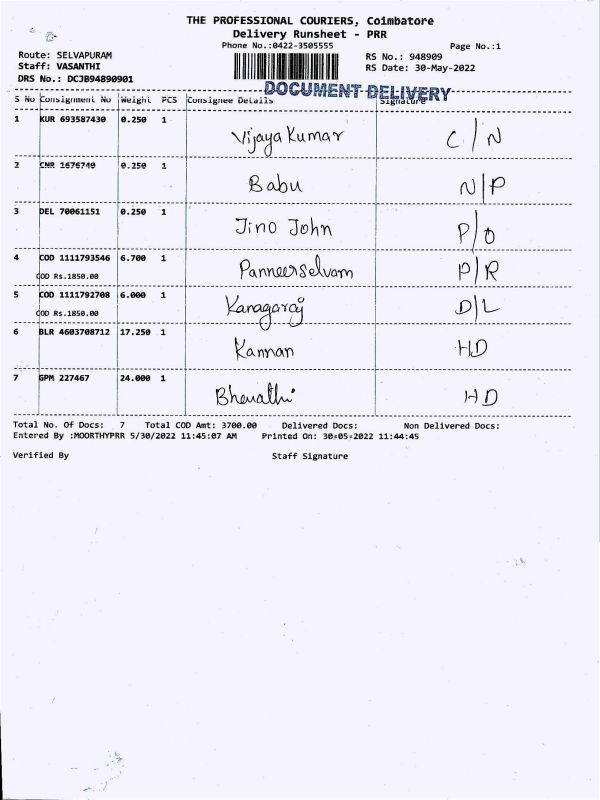 THE PROFESSIONAL COURIERS, Coimbatore
Delivery Runsheet - PRR
Phone No.:0422-3505555
Page No.:1
Route: SELVAPURAM
RS No.: 948909
Staff: VASANTHI
RS Date: 30-May-2022
DRS No.: DCJB94890901
DOCUMENT DELIVERY
S No Consignment No Weight PCS Consignee Details Signature
1 KUR 693587430 0.250 1 Vijaya Kumar C/N
2 CNR 1676740 0.250 1 Babu N|P
3 DEL 70061151 0.250 1 Jino John P/O
4 COD 1111793546 6.700 1 Panneerselvam P/R
COD Rs.1850.00
5 COD 1111792708 6.000 1 Kanagaraj D|L
COD Rs.1850.00
6 BLR 4603708712 17.250 1 Kannan HD
7 GPM 227467 24.000 1 HD
Total No. Of Docs: 7 Total COD Amt: 3700.00 Delivered Docs: Non Delivered Docs:
Entered By :MOORTHYPRR 5/30/2022 11:45:07 AM Printed On: 30-05-2022 11:44:45
Verified By Staff Signature